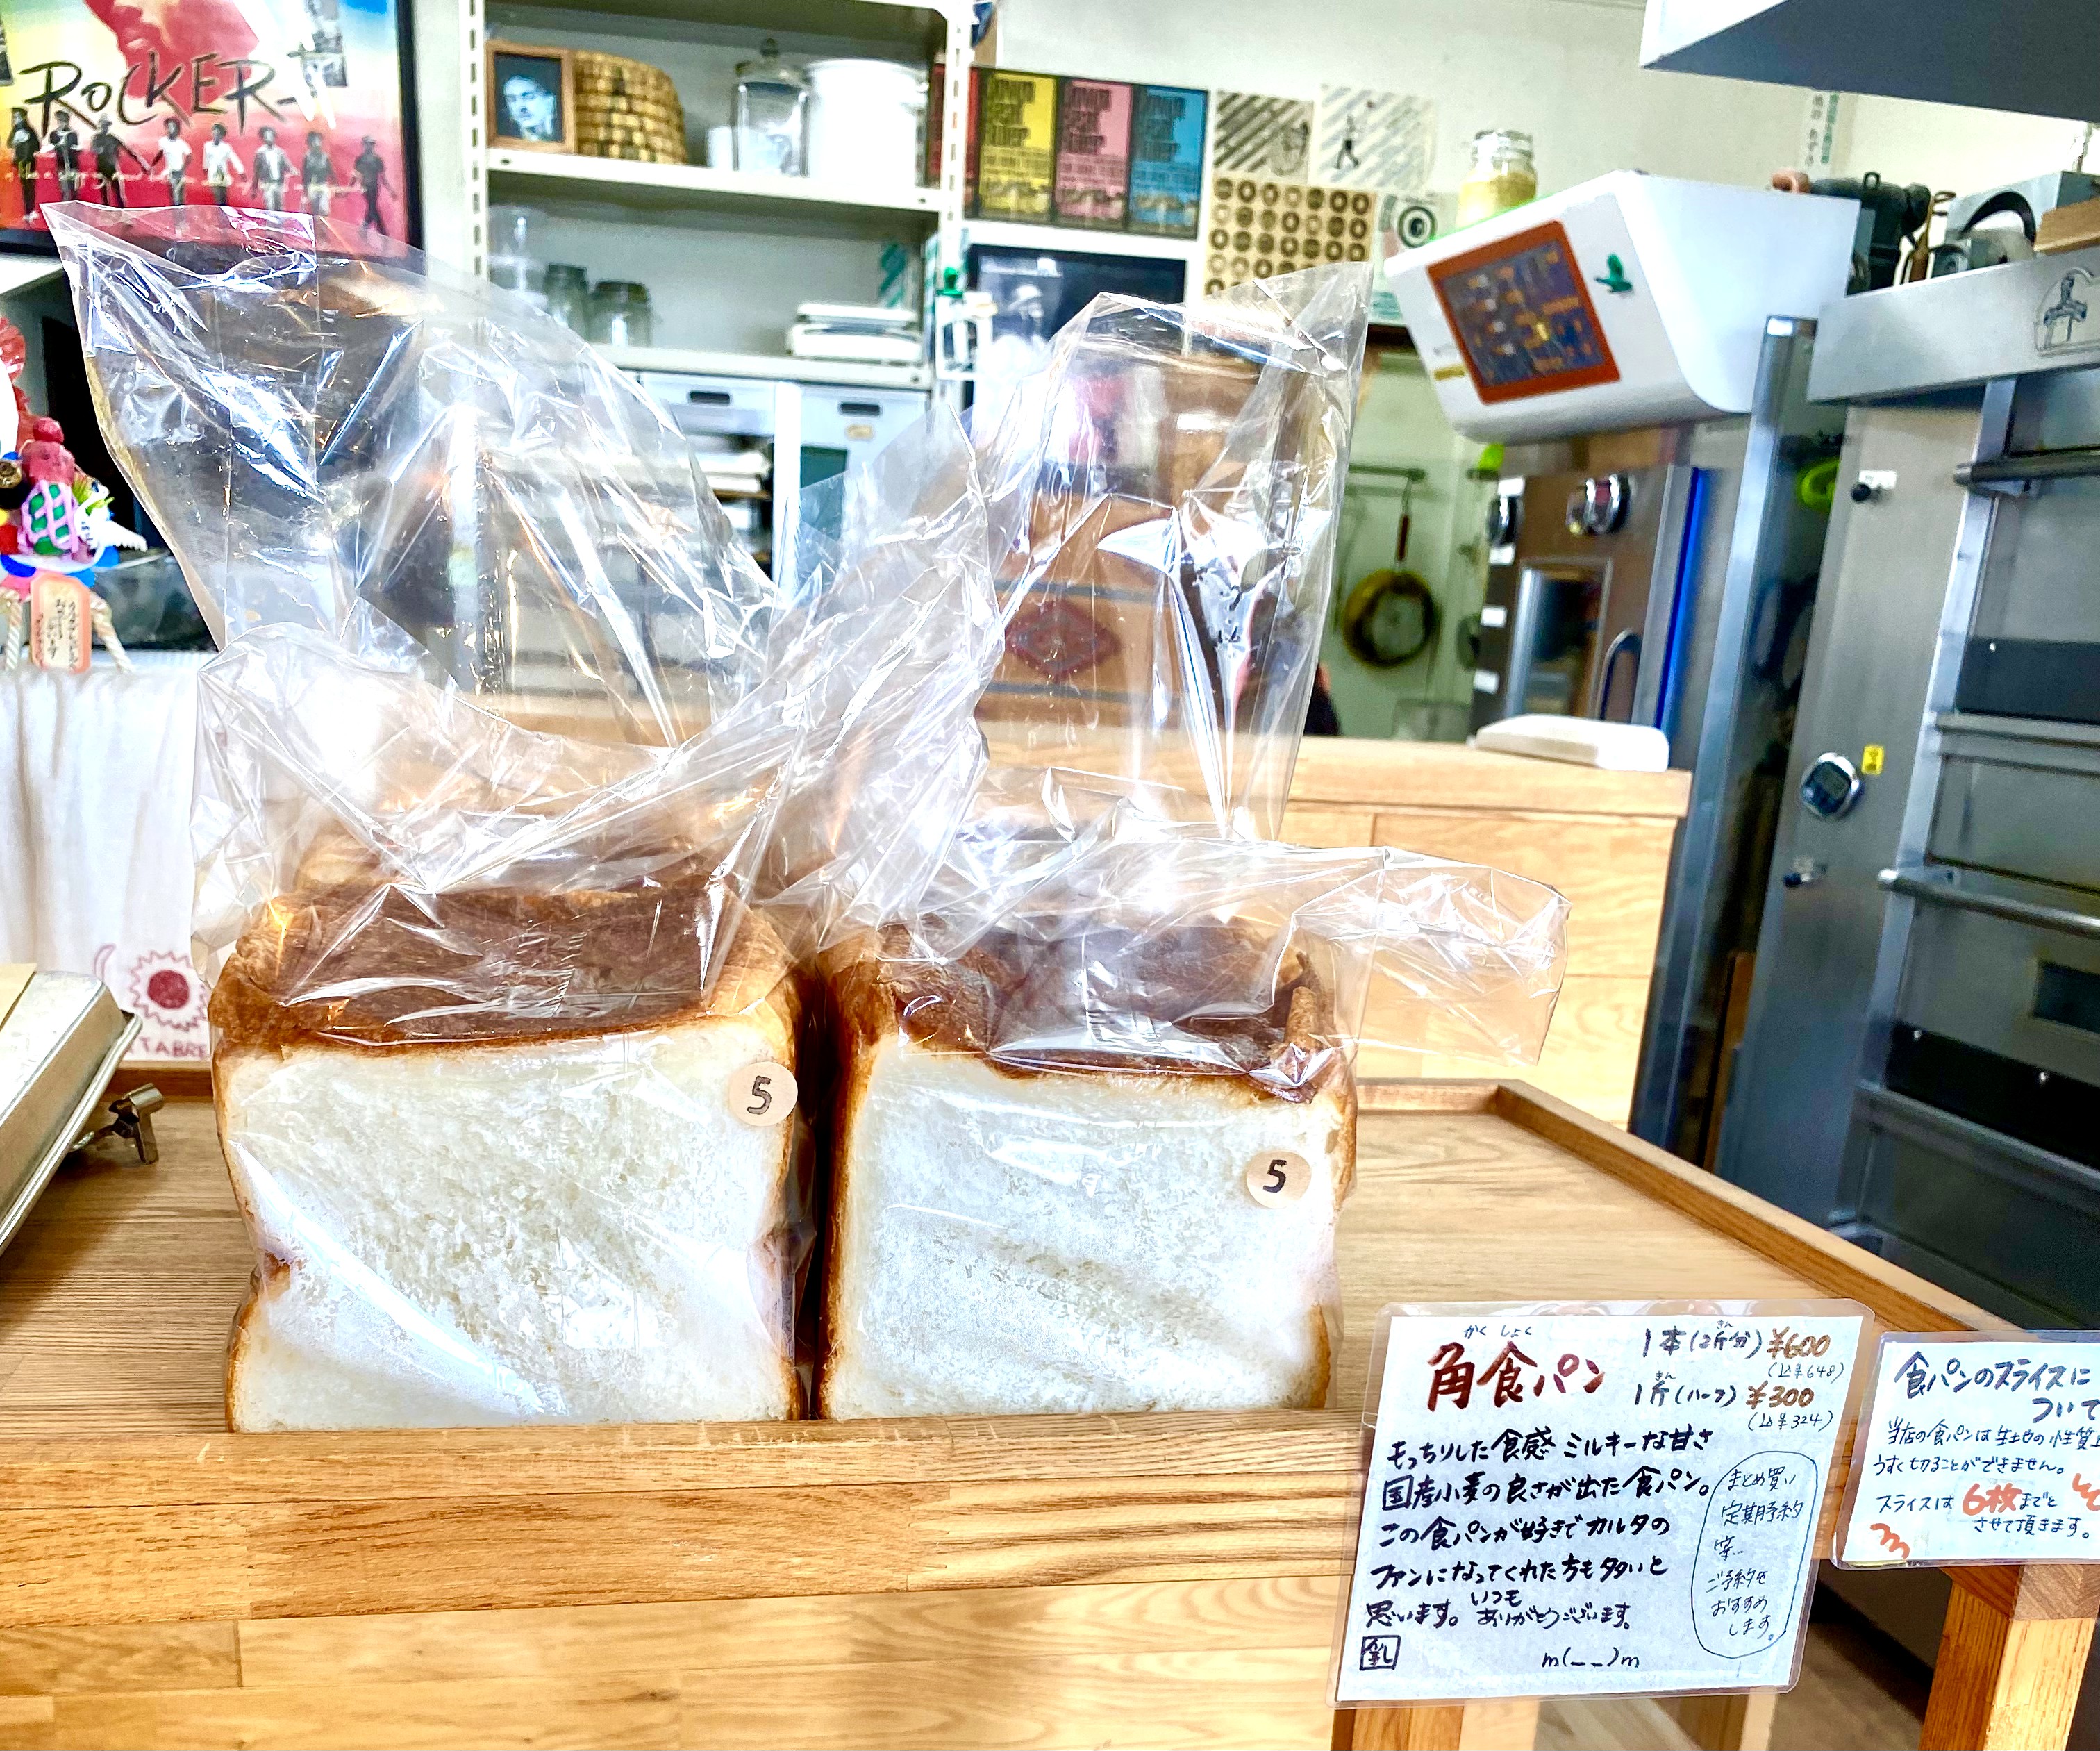 ROCKERS
5
5
かくしょく
角食パン
1本(2斤分) ¥600
きん
(込¥648)
1斤(ハーフ) ¥300
きん
(込¥324)
もっちりした食感 ミルキーな甘さ
国産小麦の良さが出た食パン。
この食パンが好きでカルタの
ファンになってくれた方も多いと
思います。いつもありがとうございます。
乳
m(__)m
まとめ買い
定期予約
等…
ご予約を
おすすめ
します。
食パンのスライスに
ついて
当店の食パンは生地の性質上
うすく切ることができません。
スライスは6枚までと
させて頂きます。
TABRE